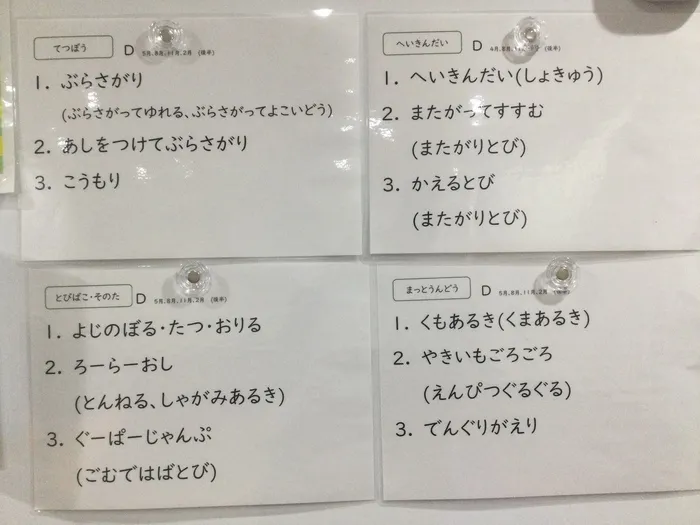 てつぼう D 5月,8月,11月,2月 (後半)
1. ぶらさがり
(ぶらさがってゆれる、ぶらさがってよこいどう)
2. あしをつけてぶらさがり
3. こうもり
へいきんだい D
1. へいきんだい(しょきゅう)
2. またがってすすむ
(またがりとび)
3. かえるとび
(またがりとび)
とびばこ・そのた D 5月,8月,11月,2月 (後半)
1. よじのぼる・たつ・おりる
2. ろーらーおし
(とんねる、しゃがみあるき)
3. ぐーぱーじゃんぷ
(ごむではばとび)
まっとうんどう D 5月,8月,11月,2月
1. くもあるき(くまあるき)
2. やきいもごろごろ
(えんぴつぐるぐる)
3. でんぐりがえり